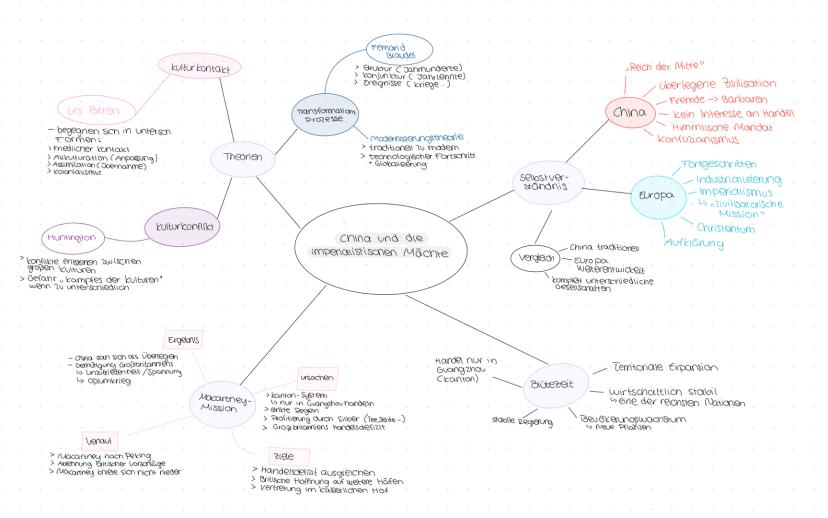 China und die
imperialistischen Mächte
Theorien
Kulturkontakt
Urs Bitterli
- begegnen sich in untersch.
Formen:
> Friedlicher Kontakt
> Akkulturation (Anpassung)
> Assimilation (Übernahme)
> Kolonialismus
Kulturkonflikt
Huntington
> Konflikte entstehen zwischen
großen Kulturen
> Gefahr „Kampfes der Kulturen"
wenn zu unterschiedlich
Transformations
prozesse
Fernand
Braudel
> Struktur (Jahrhunderte)
> Konjunktur (Jahrzehnte)
> Ereignisse (Kriege..)
Modernisierungstheorie
> traditionell zu modern
> technologischer Fortschritt
• Globalisierung
Selbstver-
ständnis
China
„Reich der Mitte"
Überlegene Zivilisation
Fremde -> Barbaren
kein Interesse an Handel
Himmlische Mandat
Konfuzianismus
Europa
Fortgeschritten
Industrialisierung
Imperialismus
↳ „zivilisatorische
Mission"
Christentum
Aufklärung
Vergleich
China traditionell
Europa
weiterentwickelt
komplett unterschiedliche
Gesellschaften
Blütezeit
Handel nur in
Guangzhou
(Kanton)
Territoriale Expansion
wirtschaftlich stabil
↳ eine der reichsten Nationen
Bevölkerungswachstum
↳ neue Pflanzen
stabile Regierung
Macartney-
Mission
Ergebnis
- China sah sich als überlegen
- Demütigung Großbritanniens
↳ Unzufriedenheit/Spannung
↳ Opiumkrieg
Ursachen
> Kanton-System
↳ nur in Guangzhou handeln
> strikte Regeln
> Profitierung durch Silber (Tee, Seide..)
> Großbritanniens Handelsdefizit
Verlauf
> Macartney nach Peking
> Ablehnung britischer Vorschläge
> Macartney kniete sich nicht nieder
Ziele
> Handelsdefizit ausgleichen
> Britische Hoffnung auf weitere Häfen
> Vertretung im kaiserlichen Hof